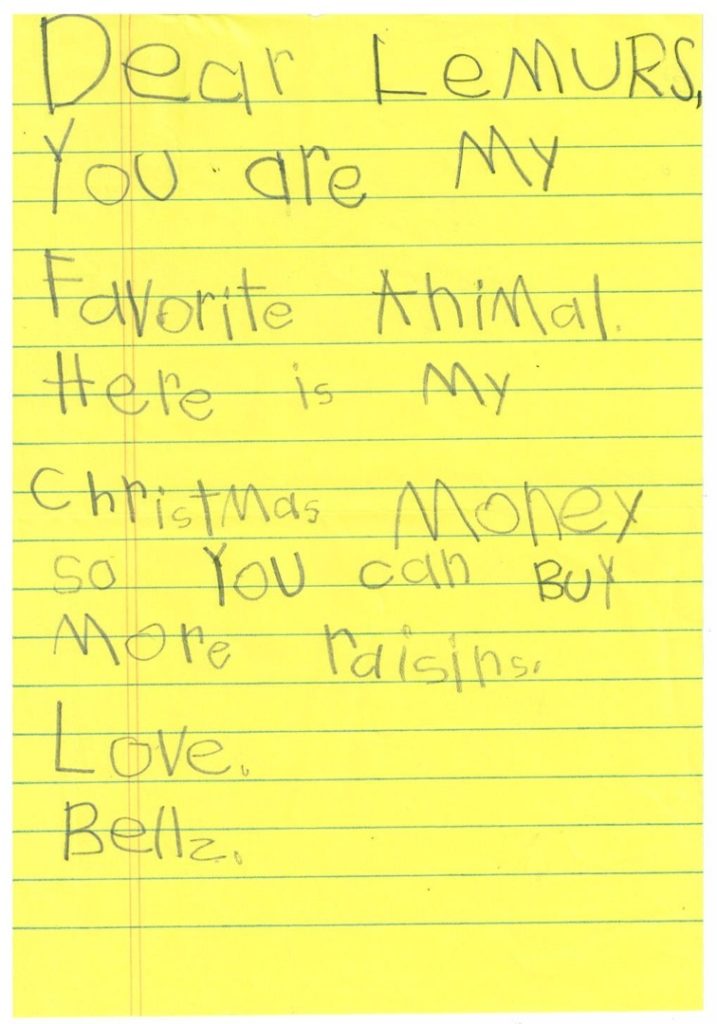 Dear LeMURS,
You are My
Favorite Animal.
Here is My
Christmas Money
so You can Buy
More raisins.
Love.
Bellz.